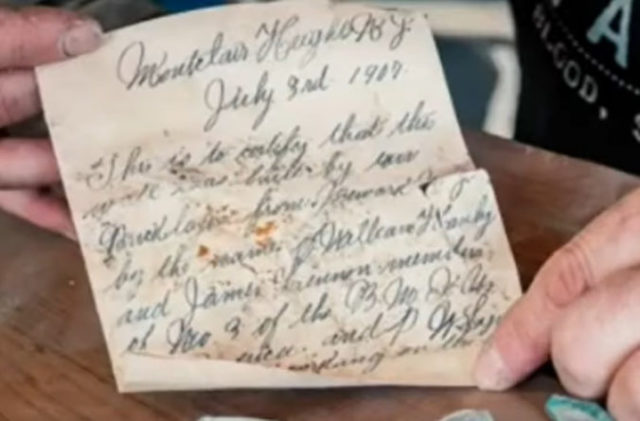 Montclair Heights N J.
July 3rd 1907.
This is to certify that this
was built by
Bricklayers from Newark N J
by the name of William Hanly
and James Lennon members
of No 3 of the B. M.
and P
working on the
A
BLOOD, S